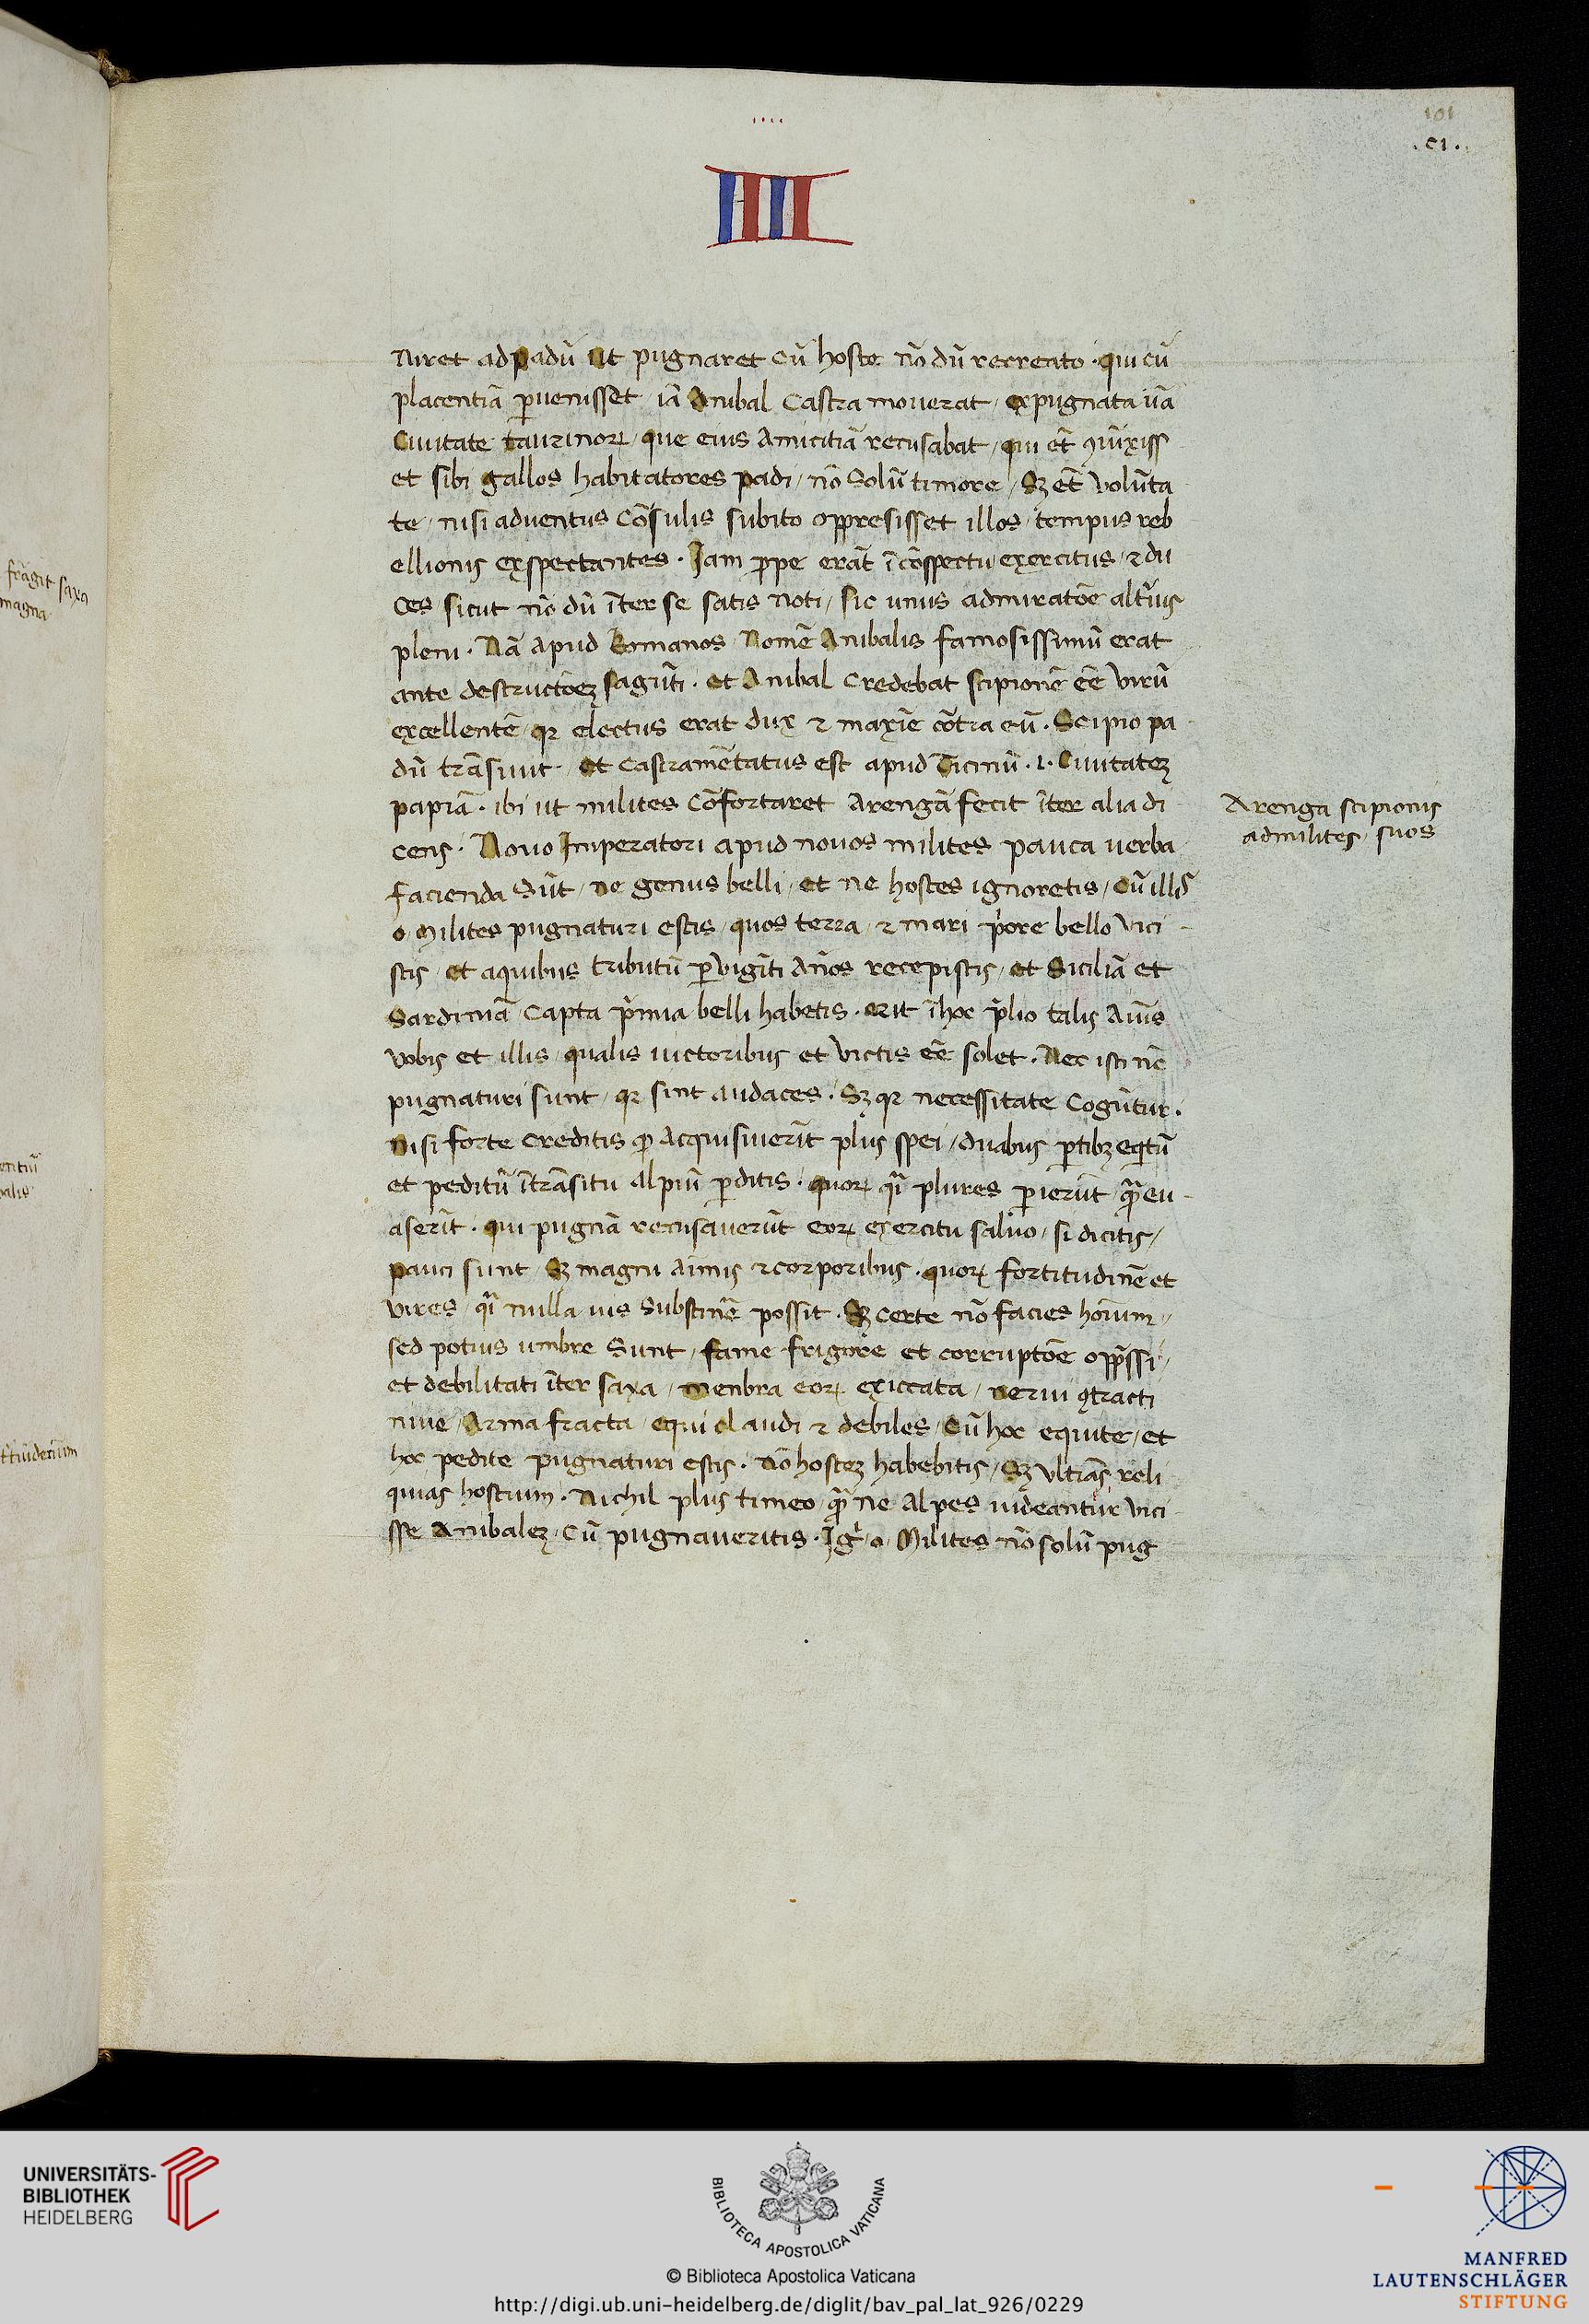 ....
101
.CI.
IIII
niret ad padū ut pugnaret cū hoste nō dū recreato · qui cū
placentiā ꝑuenisset / iā Anibal castra mouerat / expugnata ūa
Ciuitate taurinoꝝ / que eius amicitiā recusabat / qui et̄ ꝯiūxiss
et sibi gallos habitatores padi / nō solū timore / sꝫ et̄ volūta
te / nisi aduentus cōsulis subito oppresisset illos / tempus reb
ellionis exspectantes · Jam ꝓpe erāt ī cōspectu exercitus / ⁊ du
ces sicut nō dū īter se satis noti / sic unus admiratōe alt̄ius
pleni · Nā apud Romanos nomē Anibalis famosissimū erat
ante destructōeꝫ sagūti · et Anibal credebat scipionē ēē virū
excellentē qꝛ electus erat dux ⁊ maxīe cōtra eū · Scipio pa
dū trāsiuit · et castramētatus est apud Ticinū · i · Ciuitateꝫ
papiā · ibi ut milites cōfortaret arengā fecit īter alia di
cens · Nouo Imperatori apud nouos milites pauca uerba
facienda sūt / ne genus belli / et ne hostes ignoretis / cū illis
o / milites pugnaturi estis / quos terra / ⁊ mari p̄ore bello vici
stis / et a quibus tributū ꝑ vigīti ānos recepistis / et Siciliā et
Sardiniā capta p̄mia belli habetis · erit ī hoc p̄lio talis aīus
vobis et illis / qualis uictoribus et victis ēē solet · Nec isti nc̄
pugnaturi sunt / qꝛ sint audaces · sꝫ qꝛ necessitate cogūtur ·
Nisi forte creditis ꝙ acquisiuerīt plus spei / duabus ꝑtibꝫ eqtū
et peditū ī trāsitu alpiū ꝑditis · quoꝝ q̄i plures ꝑierūt q̄ʒ eu
aserīt · qui pugnā recusauerūt eoꝝ exercitu saluo / si dicitis /
pauci sunt sꝫ magni aīmis ⁊ corporibus · quoꝝ fortitudinē et
vires / q̄i nulla uis substinē possit · sꝫ certe nō facies hoīum /
sed potius umbre sunt / fame frigore et corruptōe opp̄ssi /
et debilitati īter saxa / menbra eoꝝ exiccata / nerui ꝯtracti
niue / arma fracta / equi claudi ⁊ debiles / cū hoc equite / et
hoc pedite pugnaturi estis · nō hosteꝫ habebitis / sꝫ ultīas reli
quias hostium · Nichil plus timeo / q̄ʒ ne alpes uideantur vici
sse Anibaleꝫ / cū pugnaueritis · Igr̄ / o / Milites nō solū pug
Arenga scipionis
ad milites / suos
frāgit saxa
magna
entiū
balis
UNIVERSITÄTS-
BIBLIOTHEK
HEIDELBERG
BIBLIOTECA APOSTOLICA VATICANA
© Biblioteca Apostolica Vaticana
http://digi.ub.uni-heidelberg.de/diglit/bav_pal_lat_926/0229
MANFRED
LAUTENSCHLÄGER
STIFTUNG